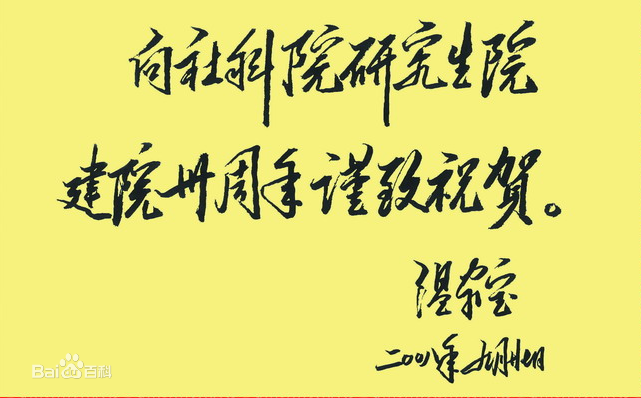 向社科院研究生院
建院卅周年谨致祝贺。
温家宝
二〇〇八年九月廿七日
Bai百科